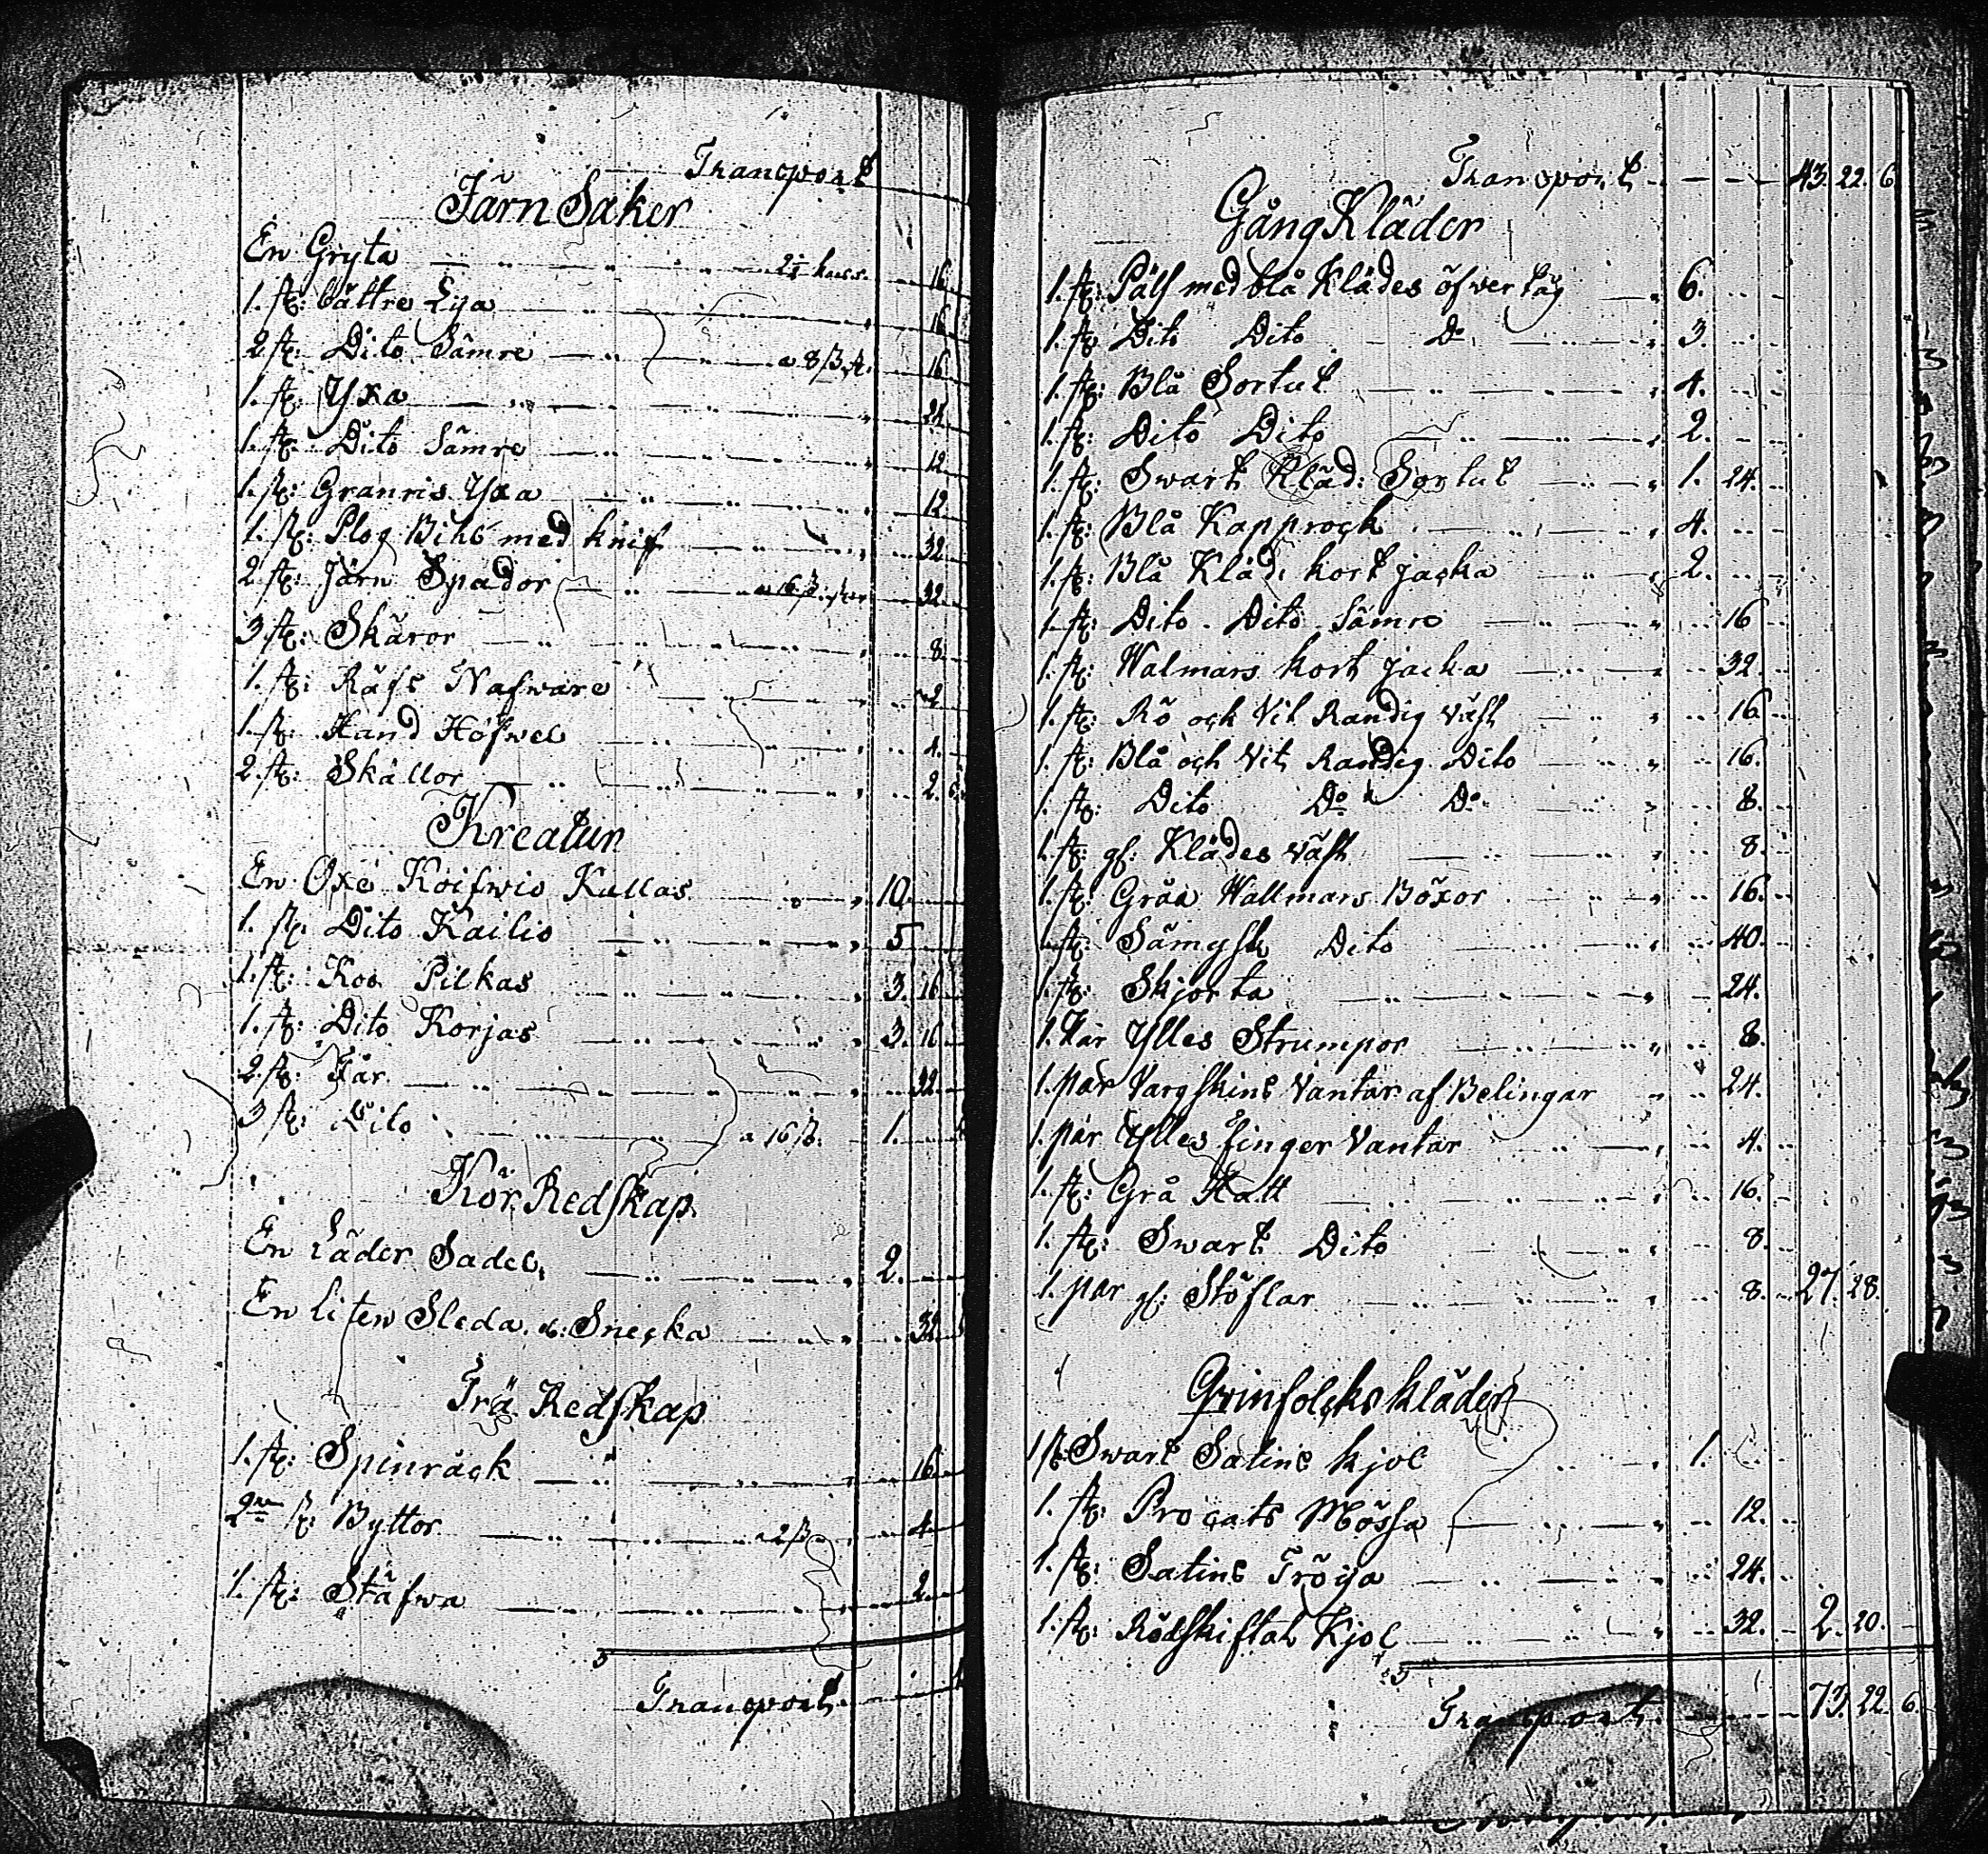 Transport
Järn Saker
En Gryta 2½ kass. 16
1. st: bättre Lija 16
2. st: Dito Sämre a 8 ß st. 16
1. st: Yxa 24
1. st: Dito Sämre 12
1. st: Granris Yxa 12
1. st: Plog Bihl med knif 32
2. st: Järn Spador a 16 ß 32
3. st: Skäror 8
1. st: Räfs Nafware 2
1. st: Hand Höfwel 4.
2. st: Skällor 2. 6.
Kreatur
En Oxe Koifwio Kallas 10
1. st: Dito Kailio 5
1. st: Koo Pilkas 3. 16
1. st: Dito Korjas 3. 16
2. st: Får 32
3 st: Dito a 16 ß. 1.
Kör Redskap
En Läder Sadel 2.
En liten Sleda el: Snecka 32
Trä Redskap
1. st: Spinråck 16
2ne st: Byttor a 2 ß 4
1. st: Stäfwa 2
Transport
Transport 43. 22. 6
Gång Kläder
1. st: Päls med blå Klädes öfwertåg 6.
1. st: Dito Dito Do 3
1. st: Blå Sortut 4.
1. st: Dito Dito 2.
1. st: Swart Kläd: Sortut 1. 24.
1. st: Blå Kapprock 4.
1. st: Blå Kläd: kort jacka 2.
1. st: Dito Dito Sämre 16
1. st: Walmars kort jacka 32.
1. st: Rö och Vit Randig Väst 16
1. st: Blå och Vit Randig Dito 16.
1. st: Dito Do Do 8.
1. st: gl: Klädes Väst 8.
1. st: Gråa Wallmars Böxor 16.
1. st: Sämgsk Dito 40.
1. st: Skjorta 24.
1. Par Ylles Strumpor 8.
1. par Vargskins Vantar af Belingar 24.
1. par Ylles finger Vantar 4.
1. st: Grå Hatt 16.
1. st: Swart Dito 8.
1. par gl: Stöflar 8. 27. 28.
Qvinfolcks kläder
1 st: Swart Satins kjol 1.
1. st: Procats Mössa 12.
1. st: Satins Tröja 24.
1. st: Rödskiftat Kjol 32. 2. 20.
Transport 73. 22. 6.